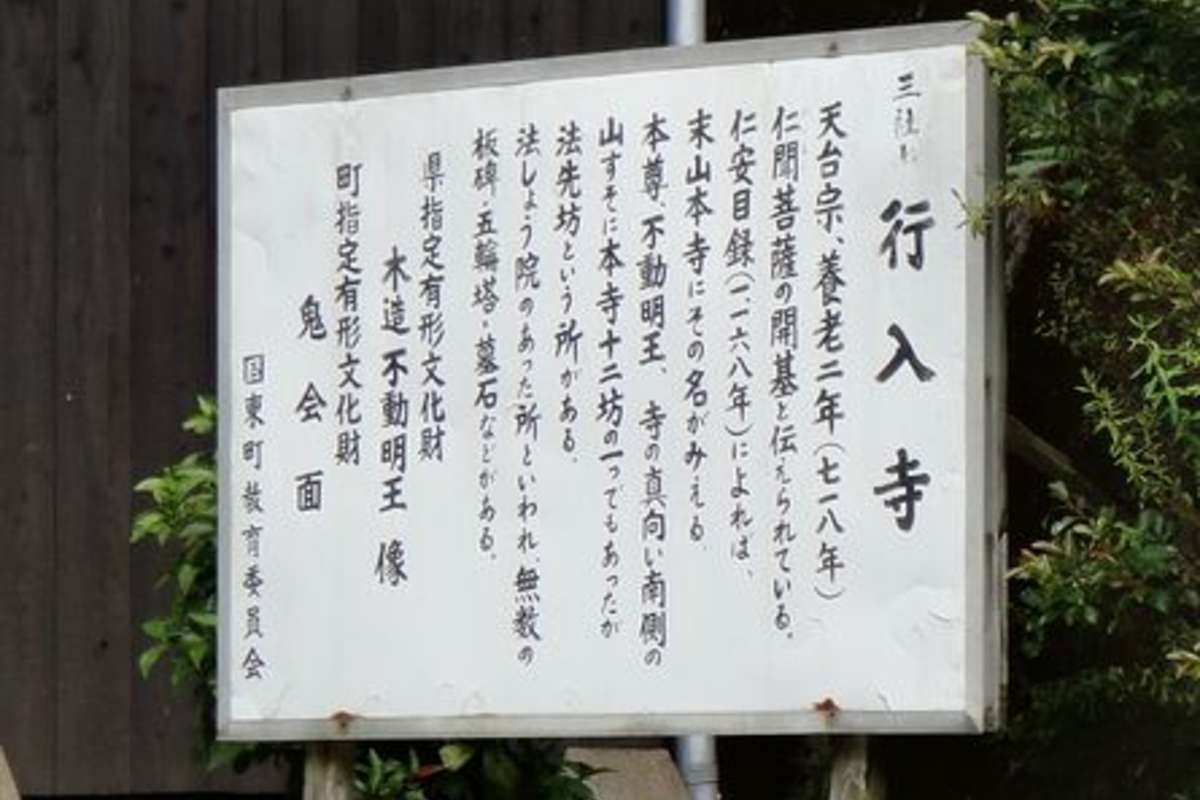 行入寺
天台宗、養老二年(七一八年)
仁聞菩薩の開基と伝えられている。
仁安目録(一、一六八年)によれば、
末山本寺にその名がみえる。
本尊、不動明王、寺の真向い南側の
山すそに本寺十二坊の一つでもあったが
法先坊という所がある。
法しょう院のあった所といわれ、無数の
板碑・五輪塔・墓石などがある。
県指定有形文化財
木造不動明王像
町指定有形文化財
鬼会面
国東町教育委員会